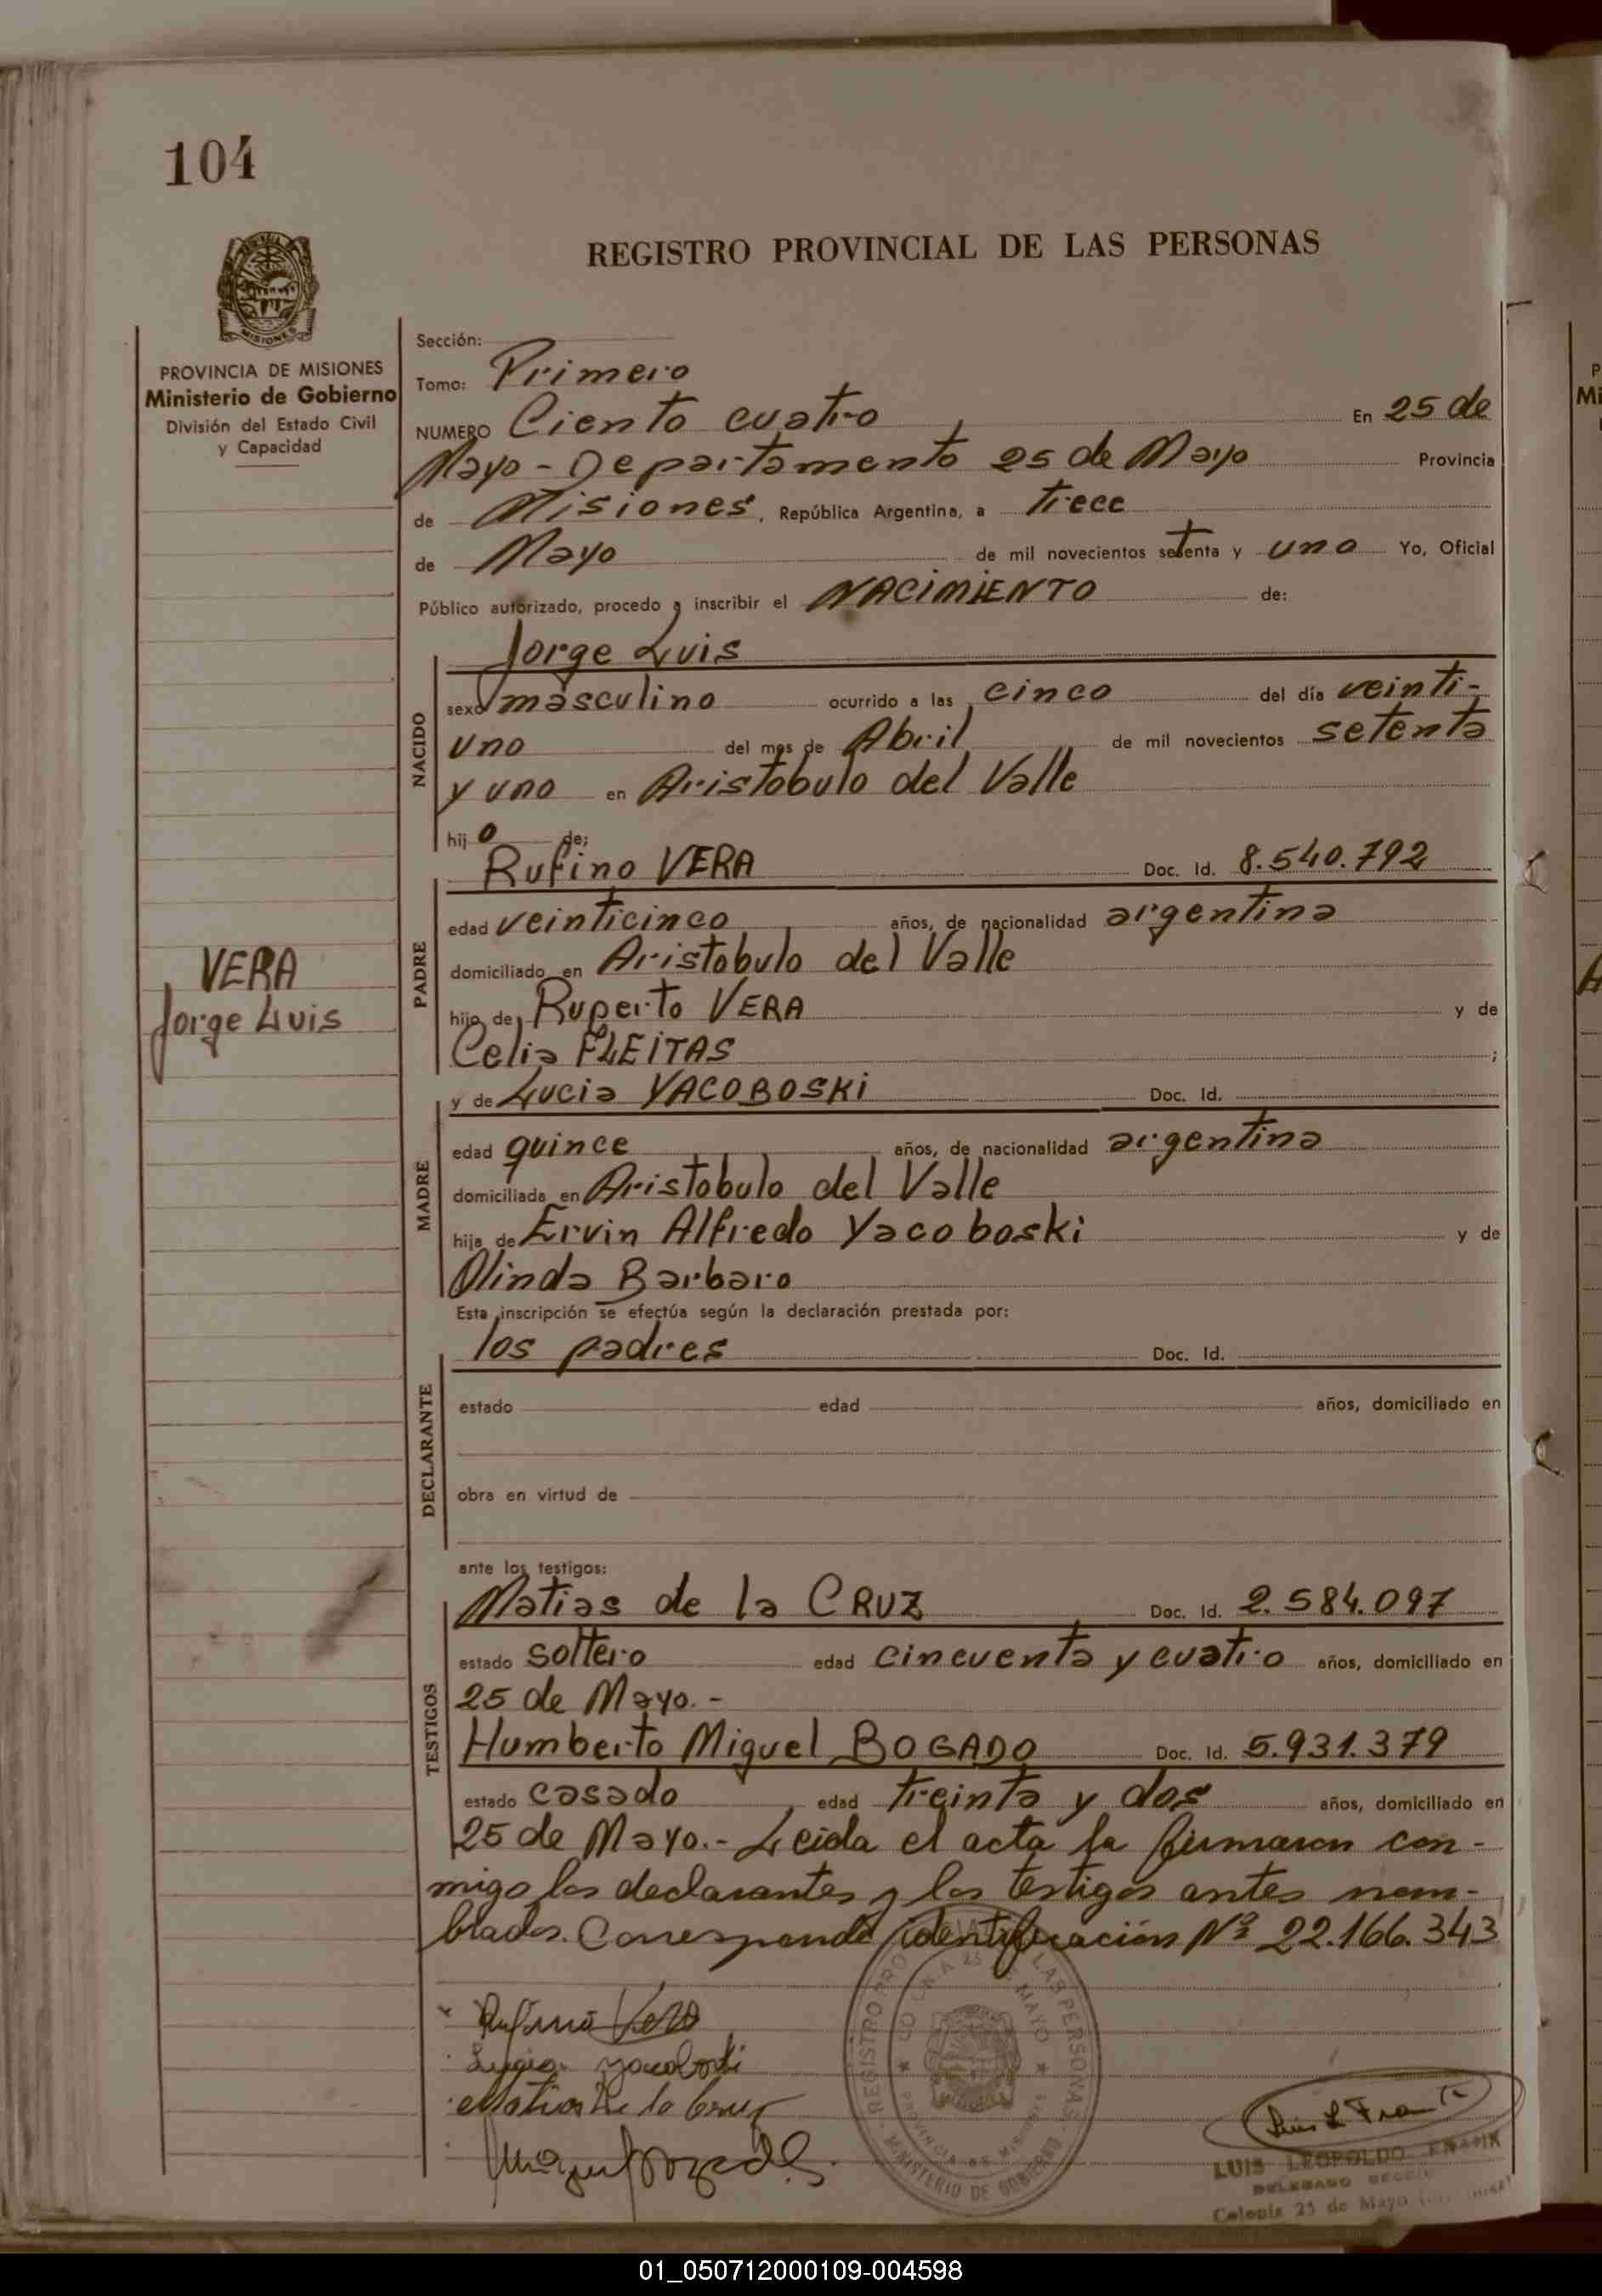 104
REGISTRO PROVINCIAL DE LAS PERSONAS
MISIONES
PROVINCIA DE MISIONES
Ministerio de Gobierno
División del Estado Civil
y Capacidad
Sección:
Tomo: Primero
NUMERO Ciento cuatro En 25 de
Mayo - Departamento 25 de Mayo Provincia
de Misiones, República Argentina, a trece
de Mayo de mil novecientos setenta y uno Yo, Oficial
Público autorizado, procedo a inscribir el NACIMIENTO de:
NACIDO
Jorge Luis
sexo masculino ocurrido a las cinco del día veinti-
uno del mes de Abril de mil novecientos setenta
y uno en Aristobulo del Valle
hijo de:
PADRE
Rufino VERA Doc. Id. 8.540.792
edad veinticinco años, de nacionalidad argentina
domiciliado en Aristobulo del Valle
VERA
Jorge Luis
hijo de Ruperto VERA y de
Celia FLEITAS ;
MADRE
y de Lucia YACOBOSKI Doc. Id.
edad quince años, de nacionalidad argentina
domiciliada en Aristobulo del Valle
hija de Ervin Alfredo Yacoboski y de
Olinda Barbaro
Esta inscripción se efectúa según la declaración prestada por:
DECLARANTE
los padres Doc. Id.
estado edad años, domiciliado en
obra en virtud de
ante los testigos:
TESTIGOS
Matias de la CRUZ Doc. Id. 2.584.097
estado soltero edad cincuenta y cuatro años, domiciliado en
25 de Mayo.-
Humberto Miguel BOGADO Doc. Id. 5.931.379
estado casado edad treinta y dos años, domiciliado en
25 de Mayo.- Leida el acta la firmaron con-
migo los declarantes y los testigos antes nom-
brados. Corresponde identificación Nº 22.166.343
Rufino Vera
Lucia Yacoboski
Matias de la Cruz
REGISTRO PROVINCIAL DE LAS PERSONAS
MINISTERIO DE GOBIERNO
PROVINCIA DE MISIONES
25 DE MAYO
Luis L. Frank
LUIS LEOPOLDO FRANK
DELEGADO
Colonia 25 de Mayo
01_050712000109-004598